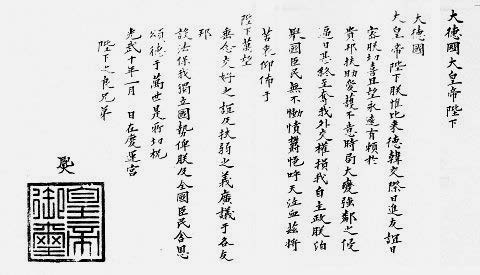 大德國大皇帝陛下
大德國
大皇帝陛下朕惟比來德韓交際日進友誼日
密朕切喜且望永遠有賴於
貴邦扶助愛護不意時局大變強鄰之侵
逼日甚終至奪我外交權損我自主政朕洎
擧國臣民無不慟憤鬱悒呼天泣血茲將
苦衷仰佈于
陛下萬望
垂念交好之誼及扶弱之義廣議于各友
邦
設法保我獨立國勢俾朕及全國臣民含恩
頌德于萬世是所切祝
光武十年一月 日在慶運宮
陛下之良兄弟
皇帝御璽